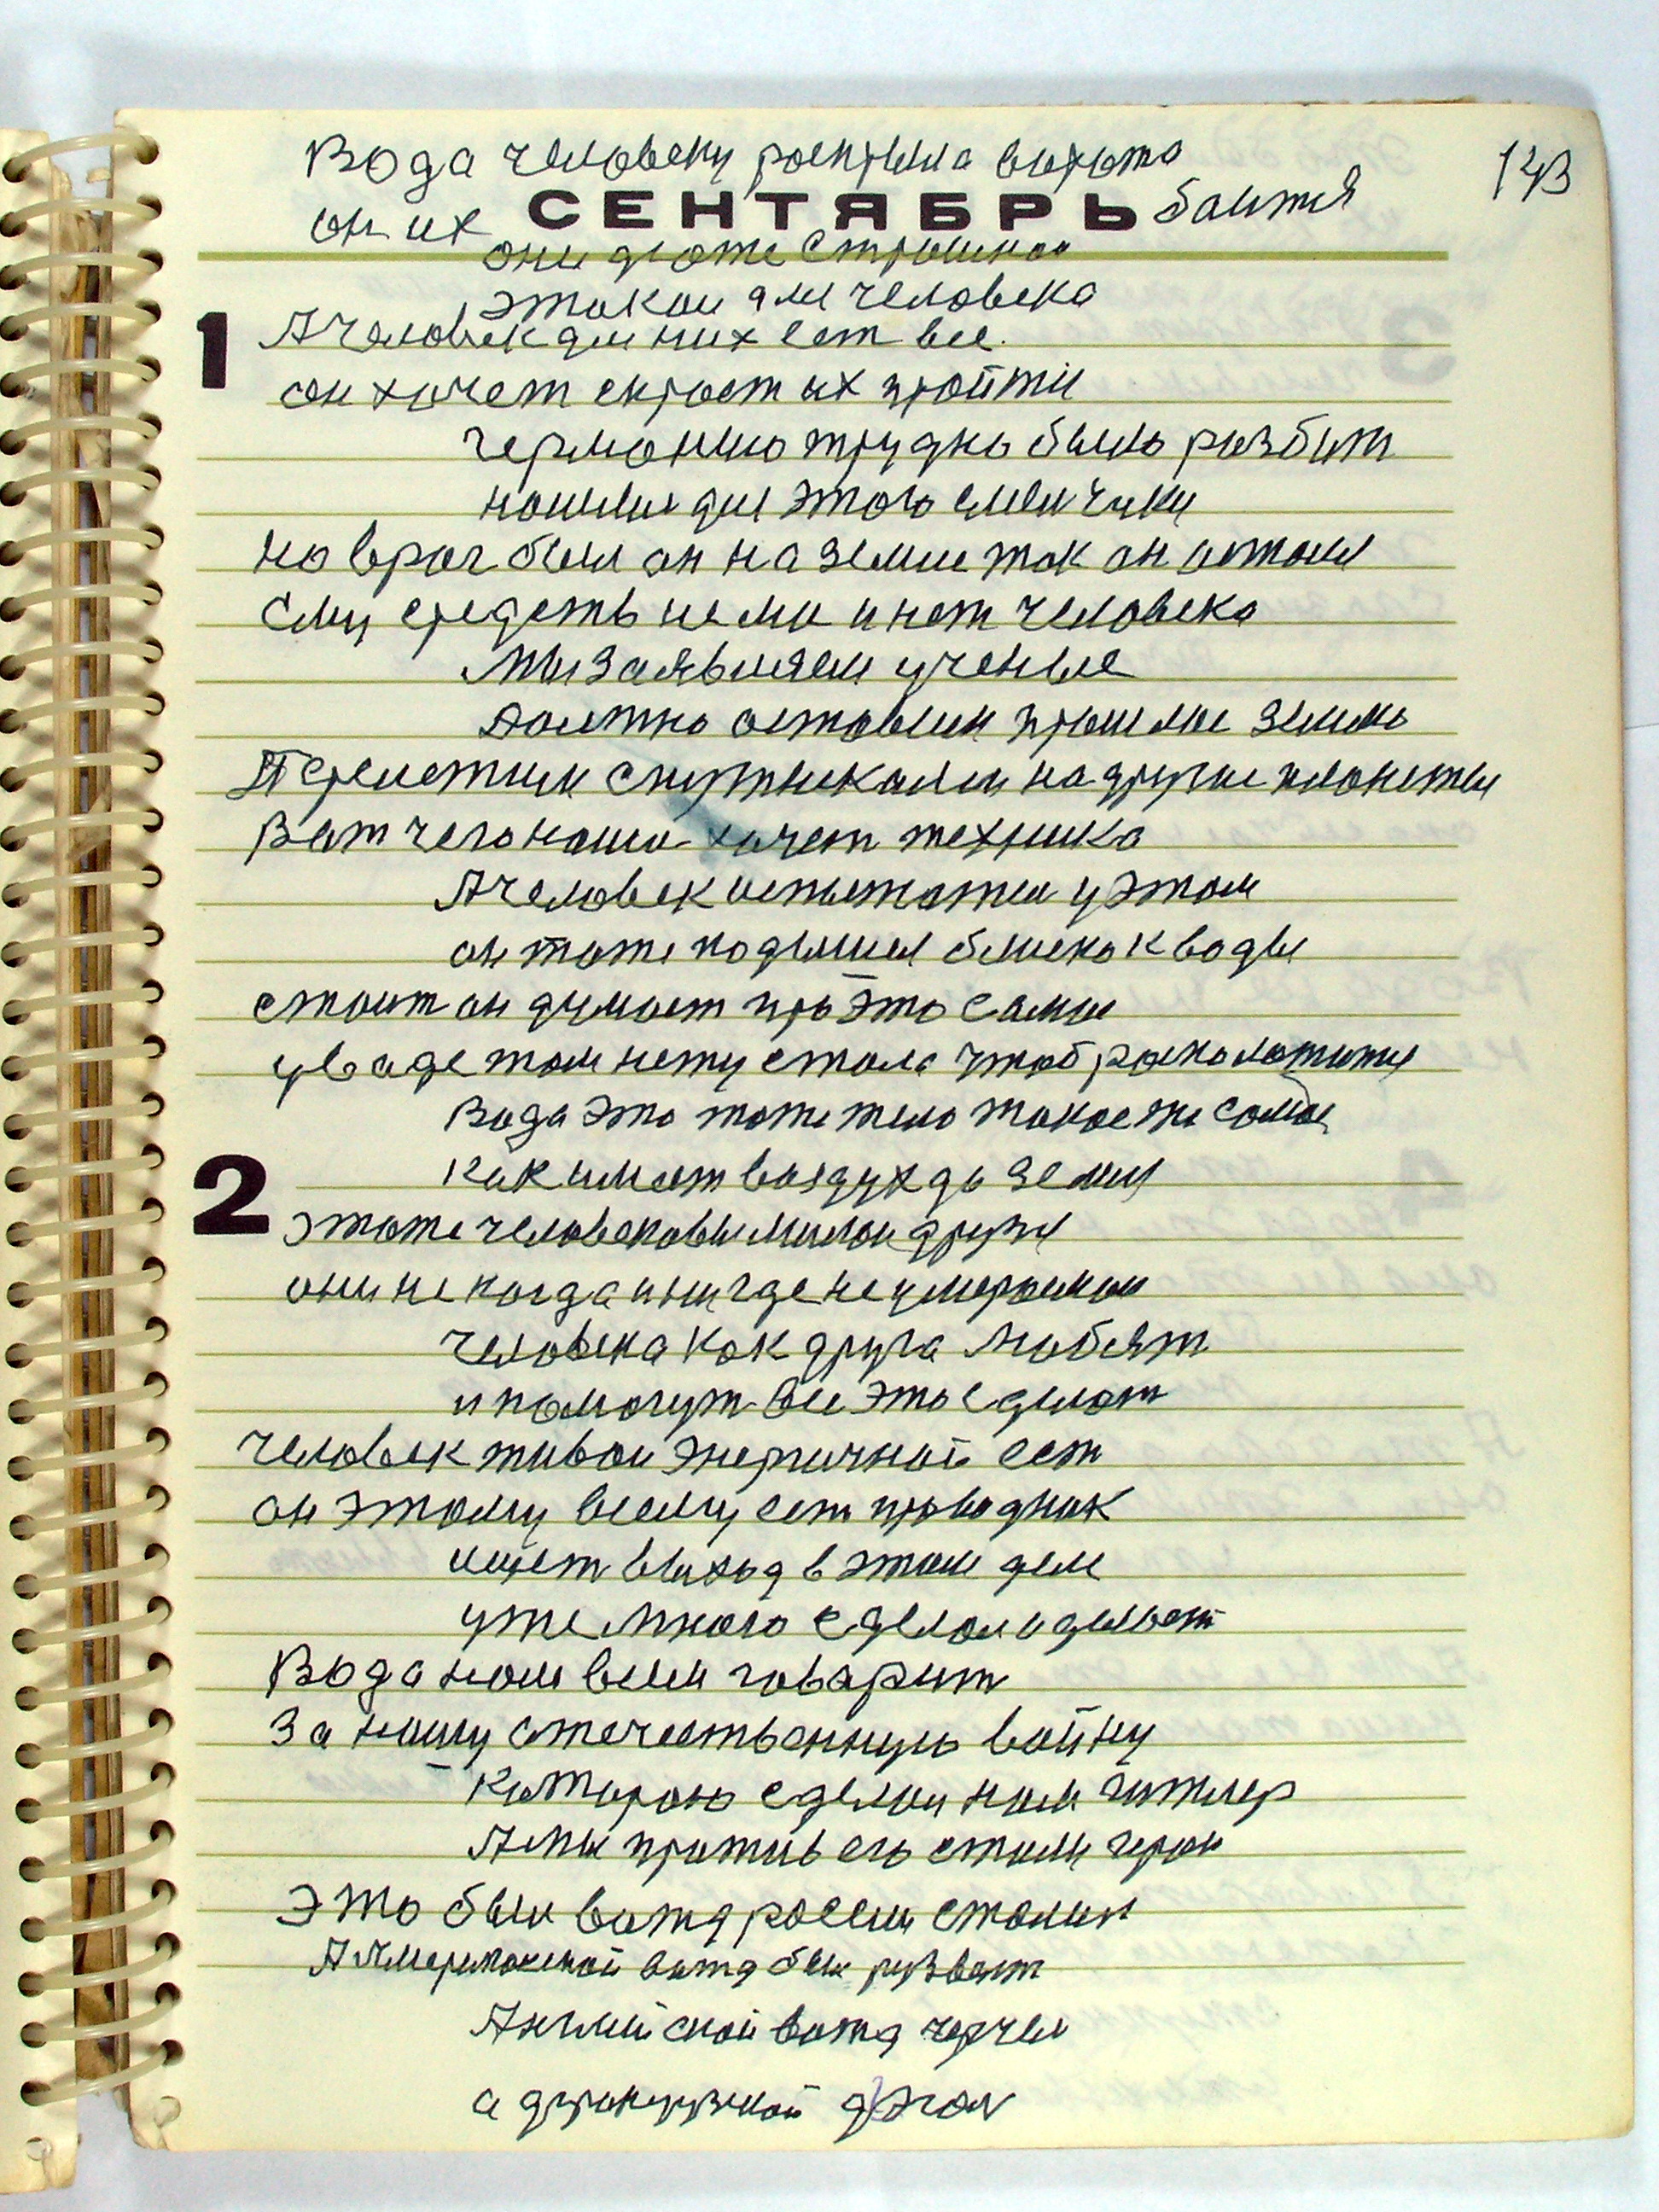 Вода человеку роскрыла ворота 143
он их СЕНТЯБРЬ боится
они дюже страшнаи
этакаи для человека
1 А человек для них ест все.
он хочет скрозт их пройти
германию трудно было розбит
нашлис для этого смелчаки
Но враг был он на земле так он истоял
Ему средств неми и нет человека
Мы заявляем ученые
Должно оставим прошлое землю
Перлетим спутникамы на другие планеты
Вот чего наша хочет техника
А человек испытател у этом
он тоже подышел близко к воды
стоит он думает про это самое
у воде том нету стола чтоб росположится
Вода это тоже тело такое же самое
2 Как имеет воздух да земля
этоже человековы милои друзя
они не когда и нигде не умераемои
человека как друга любят
и помогут все это сделат
Человек живои энергичной ест
он этому всему ест проводник
ищет выход в этом деле
уже много сделал и делает
Вода нам всем говарит
За нашу отечественную войну
Каторою сделал нам гитлер
А мы против его стали герои
Это был вожд росеи сталин
А Американской вожд был рузвелт
Английской вожд черчел
а французкой дэгол